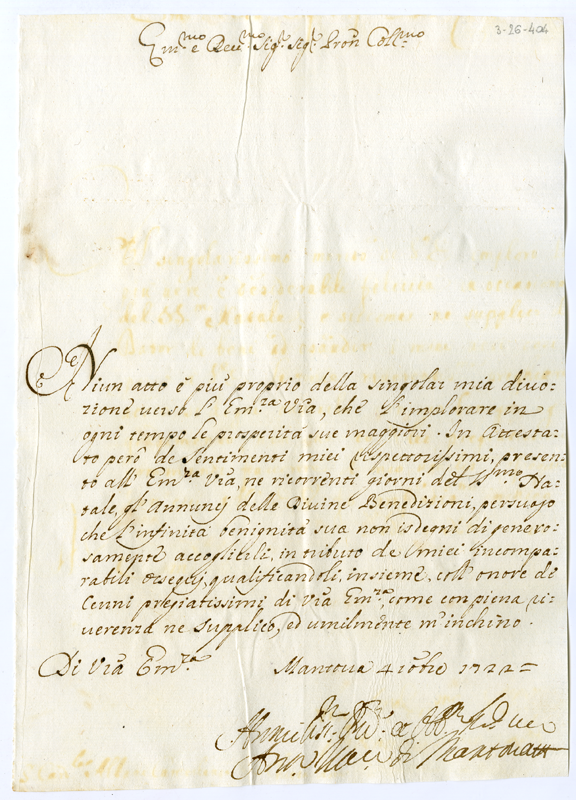 3-26-404
Em.mo e Reu.mo Sig.r Sig.r Pron Col.mo
Niun acto è più proprio della singolar mia diuo:
zione uerso l'Em.za Vra, che l'implorare in
ogni tempo le prosperità sue maggiori. In Attesta:
to però de Sentimenti miei rispettosissimi, presen:
to all'Em.za Vra, ne ricorrenti giorni del SS.mo Na:
tale, gl'Annunzj delle Diuine Benedizioni, persuaso
che l'infinita benignità sua non isdegni di genero:
samente accoglierli, in tributo de miei incompa:
rabili ossequj, qualificandoli, insieme, coll'onore di
Cenni pregiatissimi di Vra Em.za, come con piena ri:
uerenza ne Supplico, ed umilmente m'inchino.
Di Vra Em.za
Mantoua 4 Xbre 1722
di Mantoua